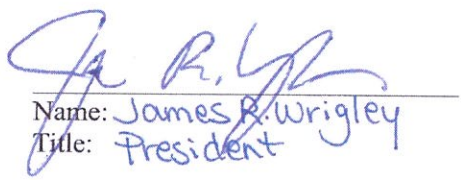 Name: James R. Wrigley
Title: President